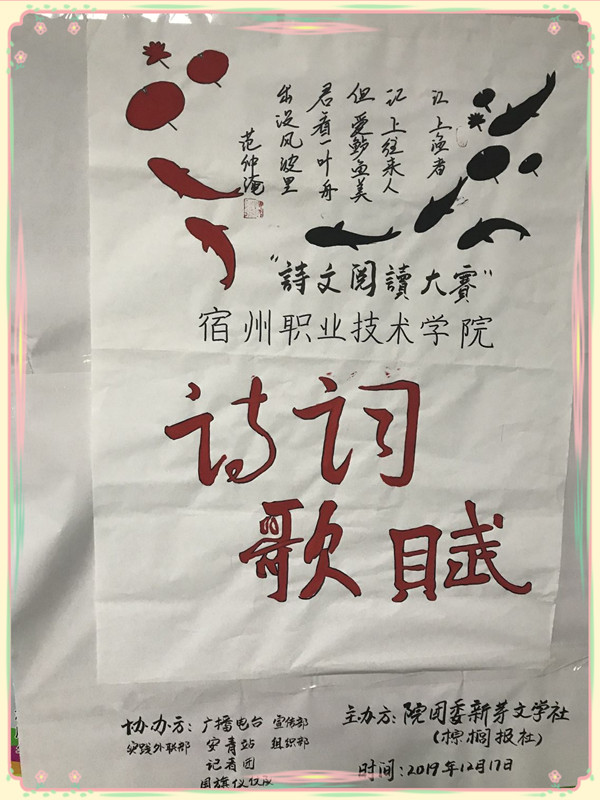 江上渔者
江上往来人
但爱鲈鱼美
君看一叶舟
出没风波里
范仲淹
"詩文阅讀大賽"
宿州职业技术学院
诗词
歌赋
协办方：广播电台 宣传部
实践外联部 安青站 组织部
记者团
国旗仪仗队
主办方：院团委新芽文学社
（棕榈报社）
时间：2019年12月17日